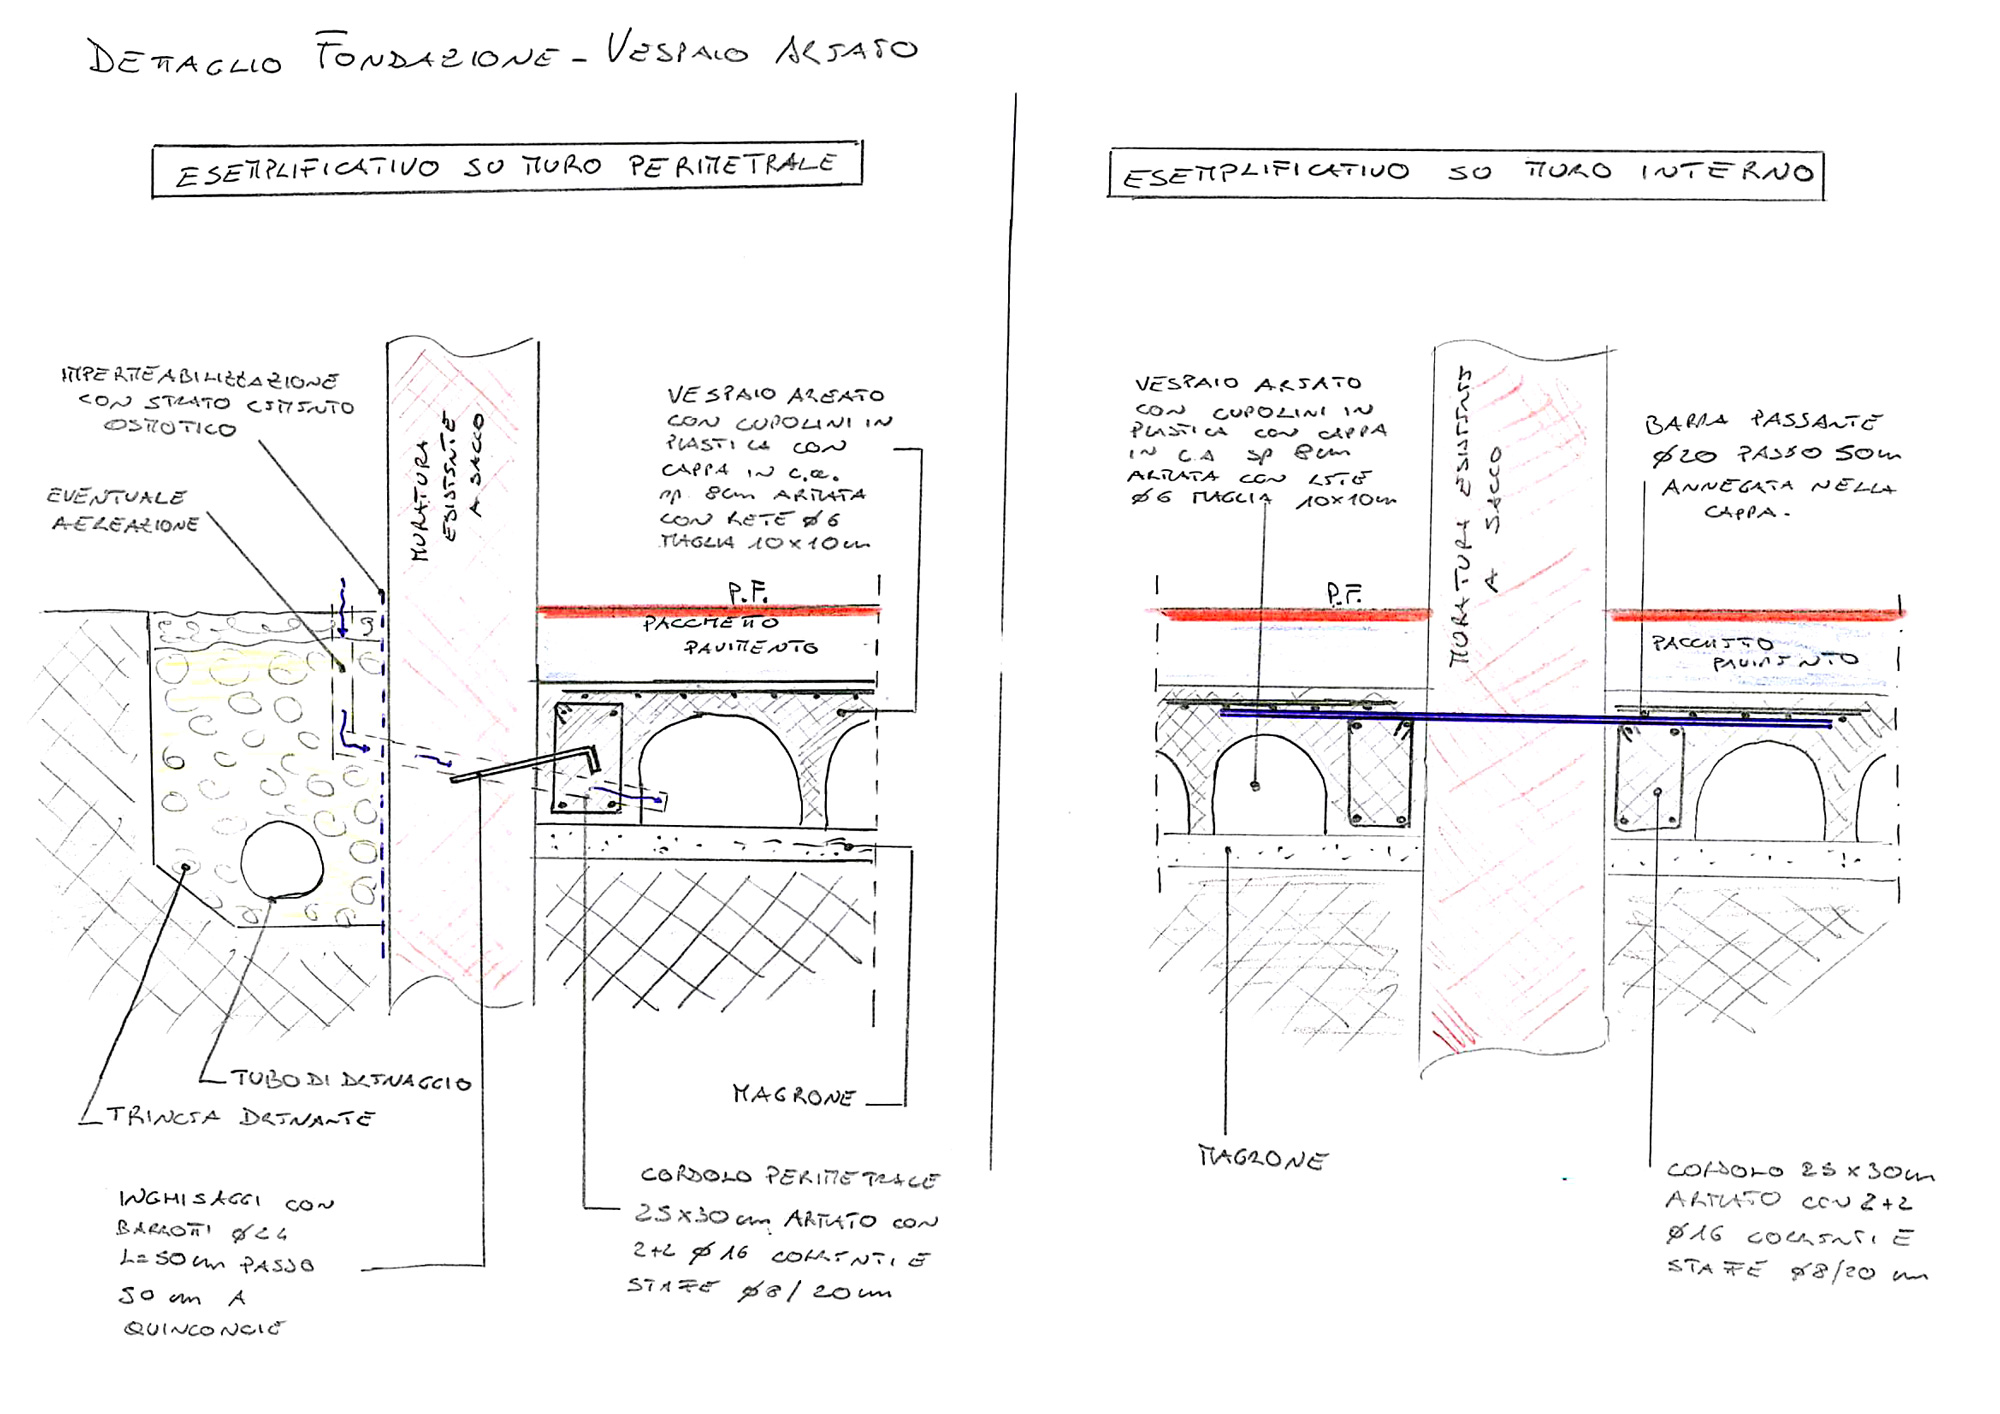 DETTAGLIO FONDAZIONE - VESPAIO AREATO
ESEMPLIFICATIVO SU MURO PERIMETRALE
IMPERMEABILIZZAZIONE
CON STRATO CEMENTO
OSMOTICO
EVENTUALE
AEREAZIONE
MURATURA
ESISTENTE
A SACCO
VESPAIO AREATO
CON CUPOLINI IN
PLASTICA CON
CAPPA IN C.a.
sp. 8cm ARMATA
CON RETE ø6
MAGLIA 10x10cm
P.F.
PACCHETTO
PAVIMENTO
TUBO DI DRENAGGIO
TRINCEA DRENANTE
MAGRONE
INGHISAGGI CON
BARROTTI ø24
L=50cm PASSO
50 cm A
QUINCONCIE
CORDOLO PERIMETRALE
25x30cm ARMATO CON
2+2 ø16 CORRENTI E
STAFFE ø8/20cm
ESEMPLIFICATIVO SU MURO INTERNO
VESPAIO AREATO
CON CUPOLINI IN
PLASTICA CON CAPPA
IN C.A sp 8cm
ARMATA CON RETE
ø6 MAGLIA 10x10cm
MURATURA ESISTENTE
A SACCO
BARRA PASSANTE
ø20 PASSO 50cm
ANNEGATA NELLA
CAPPA.
P.F.
PACCHETTO
PAVIMENTO
MAGRONE
CORDOLO 25x30cm
ARMATO CON 2+2
ø16 CORRENTI E
STAFFE ø8/20 cm